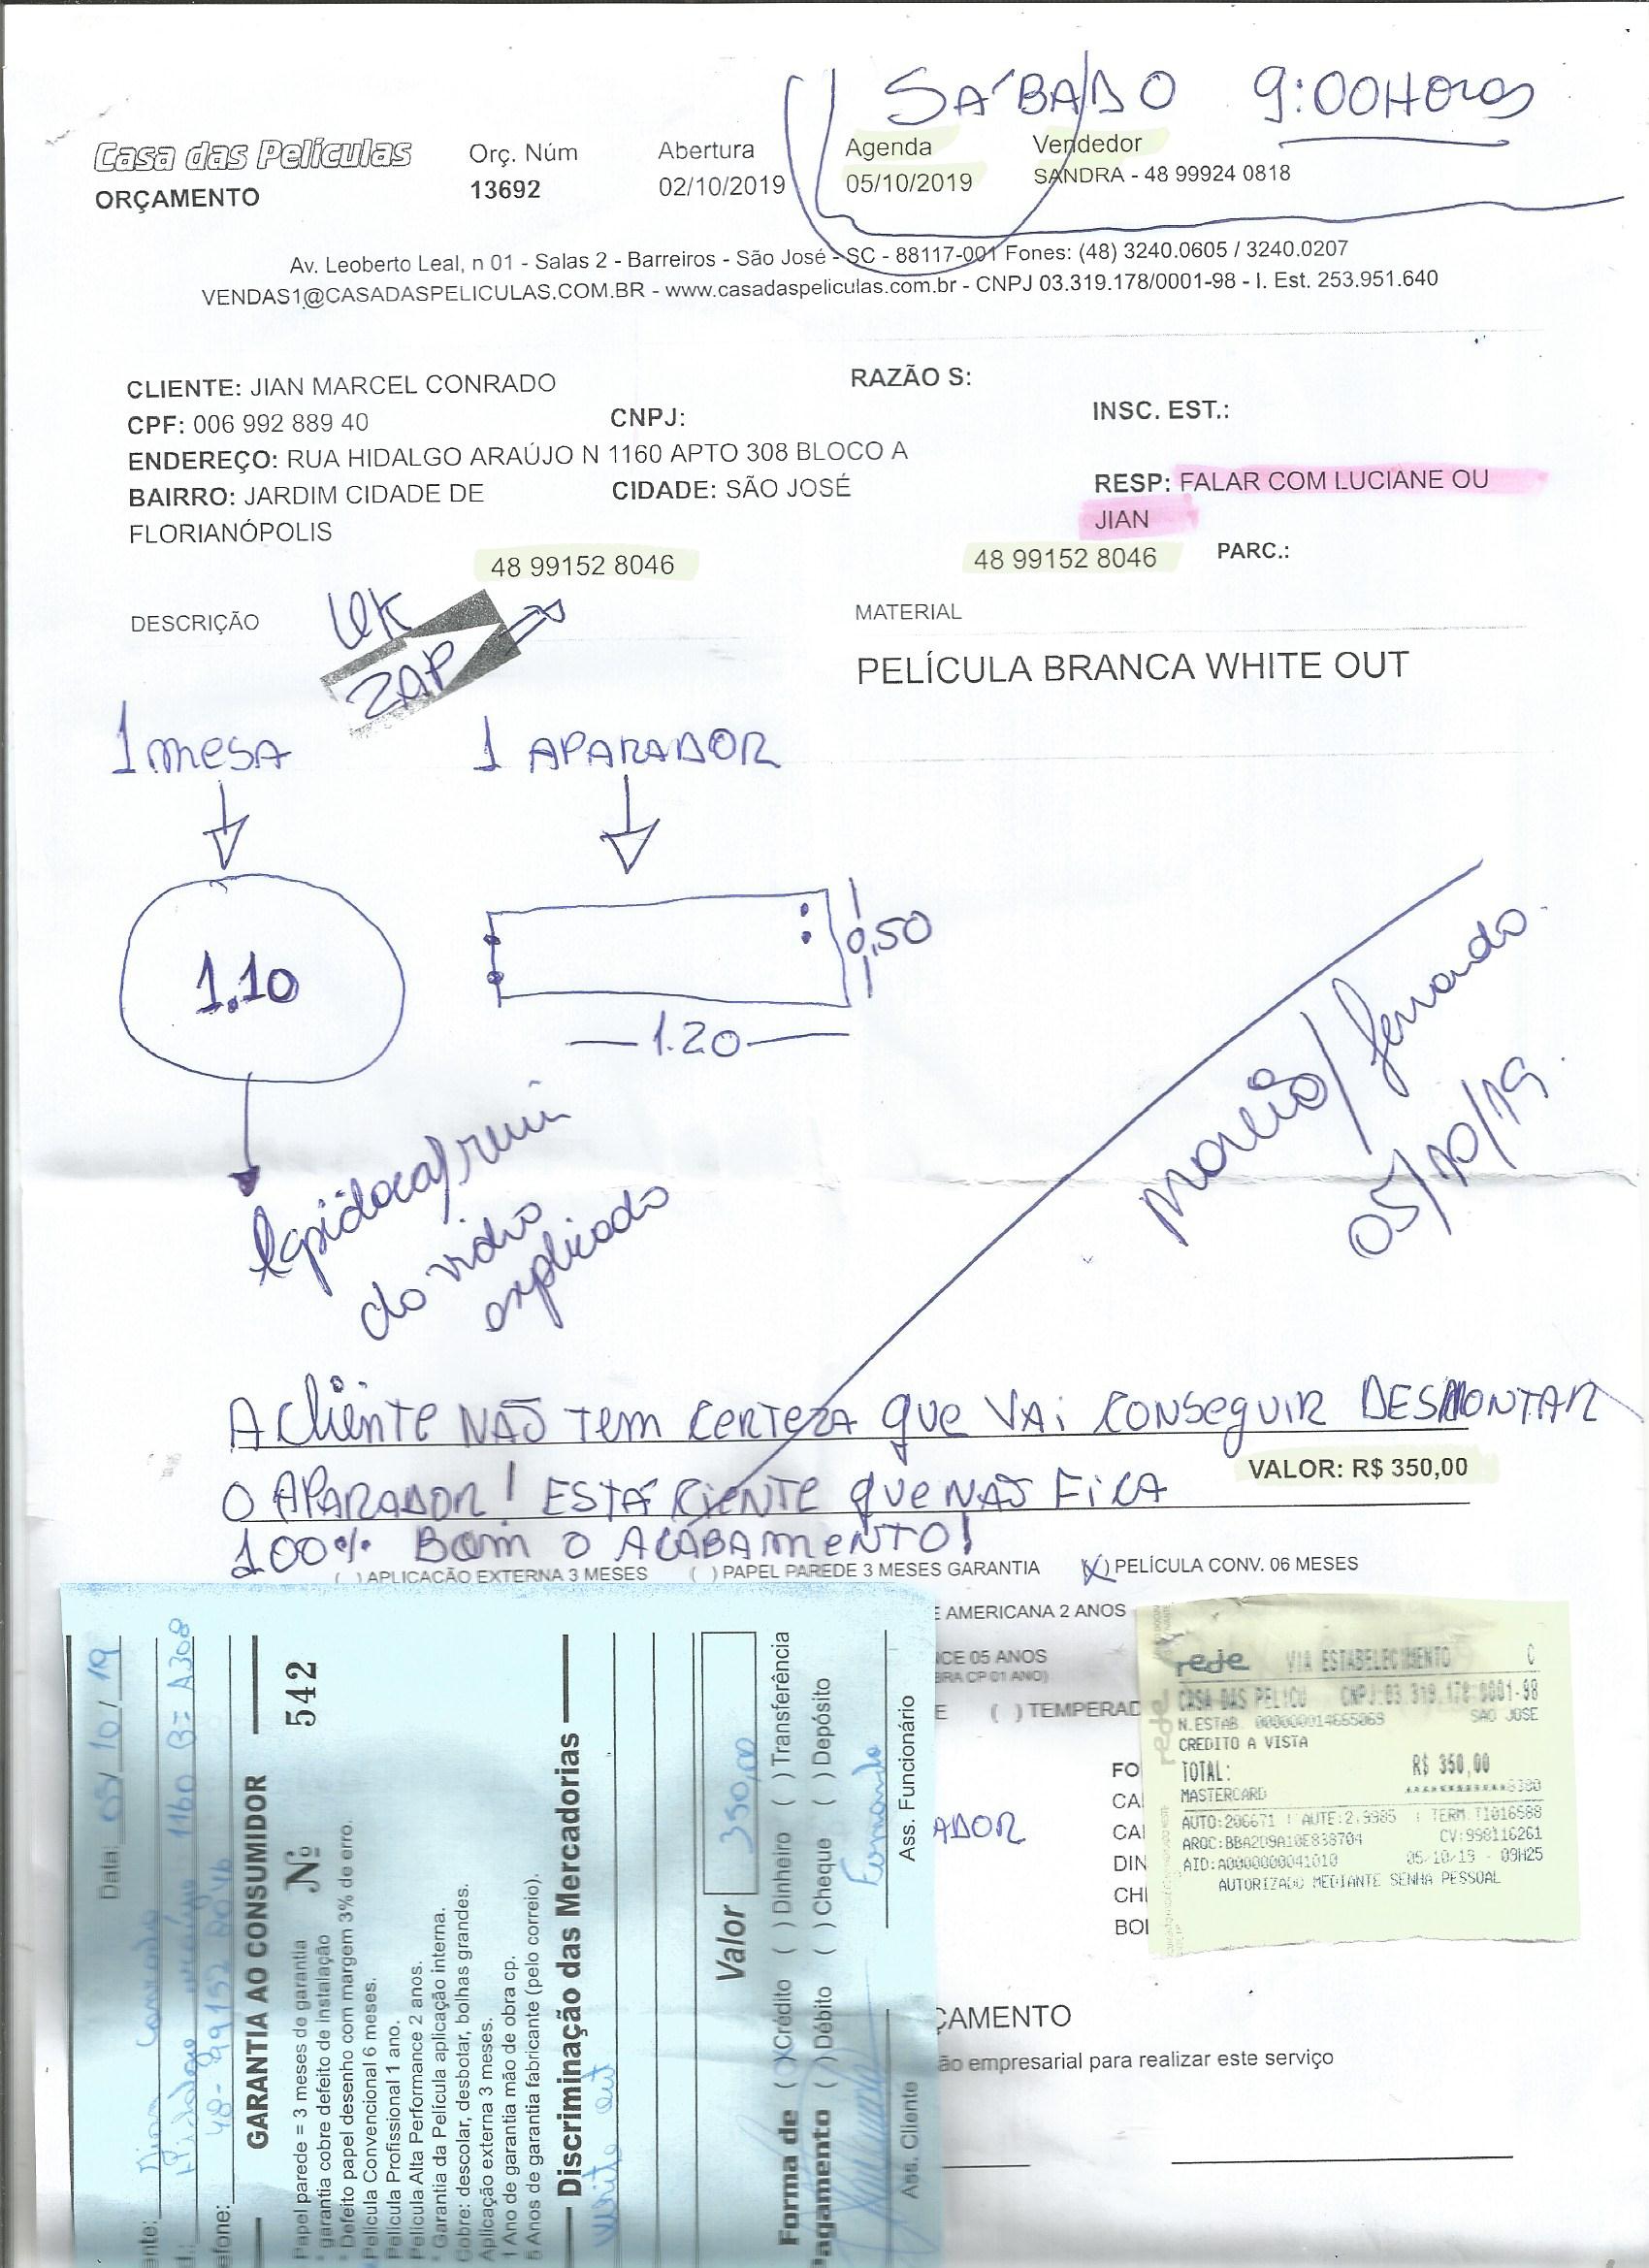 SÁBADO 9:00 Horas
Casa das Películas
ORÇAMENTO
Orç. Núm
13692
Abertura
02/10/2019
Agenda
05/10/2019
Vendedor
SANDRA - 48 99924 0818
Av. Leoberto Leal, n 01 - Salas 2 - Barreiros - São José - SC - 88117-001 Fones: (48) 3240.0605 / 3240.0207
VENDAS1@CASADASPELICULAS.COM.BR - www.casadaspeliculas.com.br - CNPJ 03.319.178/0001-98 - I. Est. 253.951.640
CLIENTE: JIAN MARCEL CONRADO
RAZÃO S:
CPF: 006 992 889 40
CNPJ:
INSC. EST.:
ENDEREÇO: RUA HIDALGO ARAÚJO N 1160 APTO 308 BLOCO A
BAIRRO: JARDIM CIDADE DE
FLORIANÓPOLIS
CIDADE: SÃO JOSÉ
RESP: FALAR COM LUCIANE OU
JIAN
48 99152 8046
48 99152 8046
PARC.:
DESCRIÇÃO
ZAP
MATERIAL
PELÍCULA BRANCA WHITE OUT
1 MESA
1 APARADOR
1.10
0,50
1.20
do vidro
explicado
Marcio/fernando.
05/10/19.
A Cliente NÃO Tem CERTEZA que VAi CONSEGUIR DESMONTAR
O APARADOR! ESTÁ CIENTE que NÃO FICA
100% BOM O ACABAMENTO!
VALOR: R$ 350,00
( ) APLICAÇÃO EXTERNA 3 MESES ( ) PAPEL PAREDE 3 MESES GARANTIA (X) PELÍCULA CONV. 06 MESES
E AMERICANA 2 ANOS
NCE 05 ANOS
BRA CP 01 ANO)
E ( ) TEMPERAD
FO
CA
ADOR
CA
DIN
CH
BO
ÇAMENTO
ão empresarial para realizar este serviço
Data: 05/10/19
ente: Jian Conrado
1160 B= A308
efone: 48-99152 8046
GARANTIA AO CONSUMIDOR Nº 542
Papel parede = 3 meses de garantia
* garantia cobre defeito de instalação
* Defeito papel desenho com margem 3% de erro.
Película Convencional 6 meses.
Película Profissional 1 ano.
Película Alta Performance 2 anos.
* Garantia da Película aplicação interna.
Cobre: descolar, desbotar, bolhas grandes.
Aplicação externa 3 meses.
1 Ano de garantia mão de obra cp.
5 Anos de garantia fabricante (pelo correio).
Discriminação das Mercadorias
White out
Valor 350,00
Forma de
Pagamento
(X) Crédito ( ) Dinheiro ( ) Transferência
( ) Débito ( ) Cheque ( ) Depósito
Ass. Cliente
Fernando
Ass. Funcionário
rede VIA ESTABELECIMENTO C
CASA DAS PELICU CNPJ:03.319.178/0001-98
N.ESTAB 000000014655069 SAO JOSE
CREDITO A VISTA
TOTAL: R$ 350,00
MASTERCARD
AUTO:206671 AUTE:2.9985 TERM:T1016588
AROC:BBA2D9A10E838704 CV:998116261
AID:A0000000041010 05-10-19 - 09H25
AUTORIZADO MEDIANTE SENHA PESSOAL